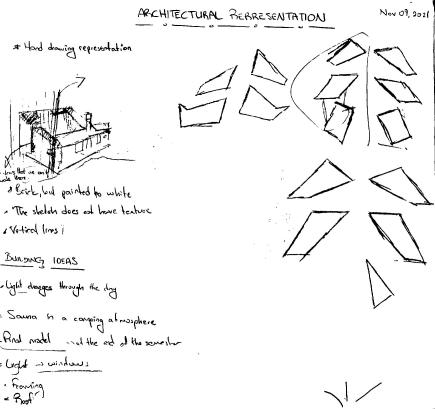 ARCHITECTURAL REPRESENTATION
Nov 09, 2021
* Hand drawing representation
* Brick, but painted to white
* The sketch does not have texture
* Vertical lines
BUILDING IDEAS
- Light changes through the day
- Sauna in a camping atmosphere
- Final model at the end of the semester
- Light → windows
* Framing
* Roof